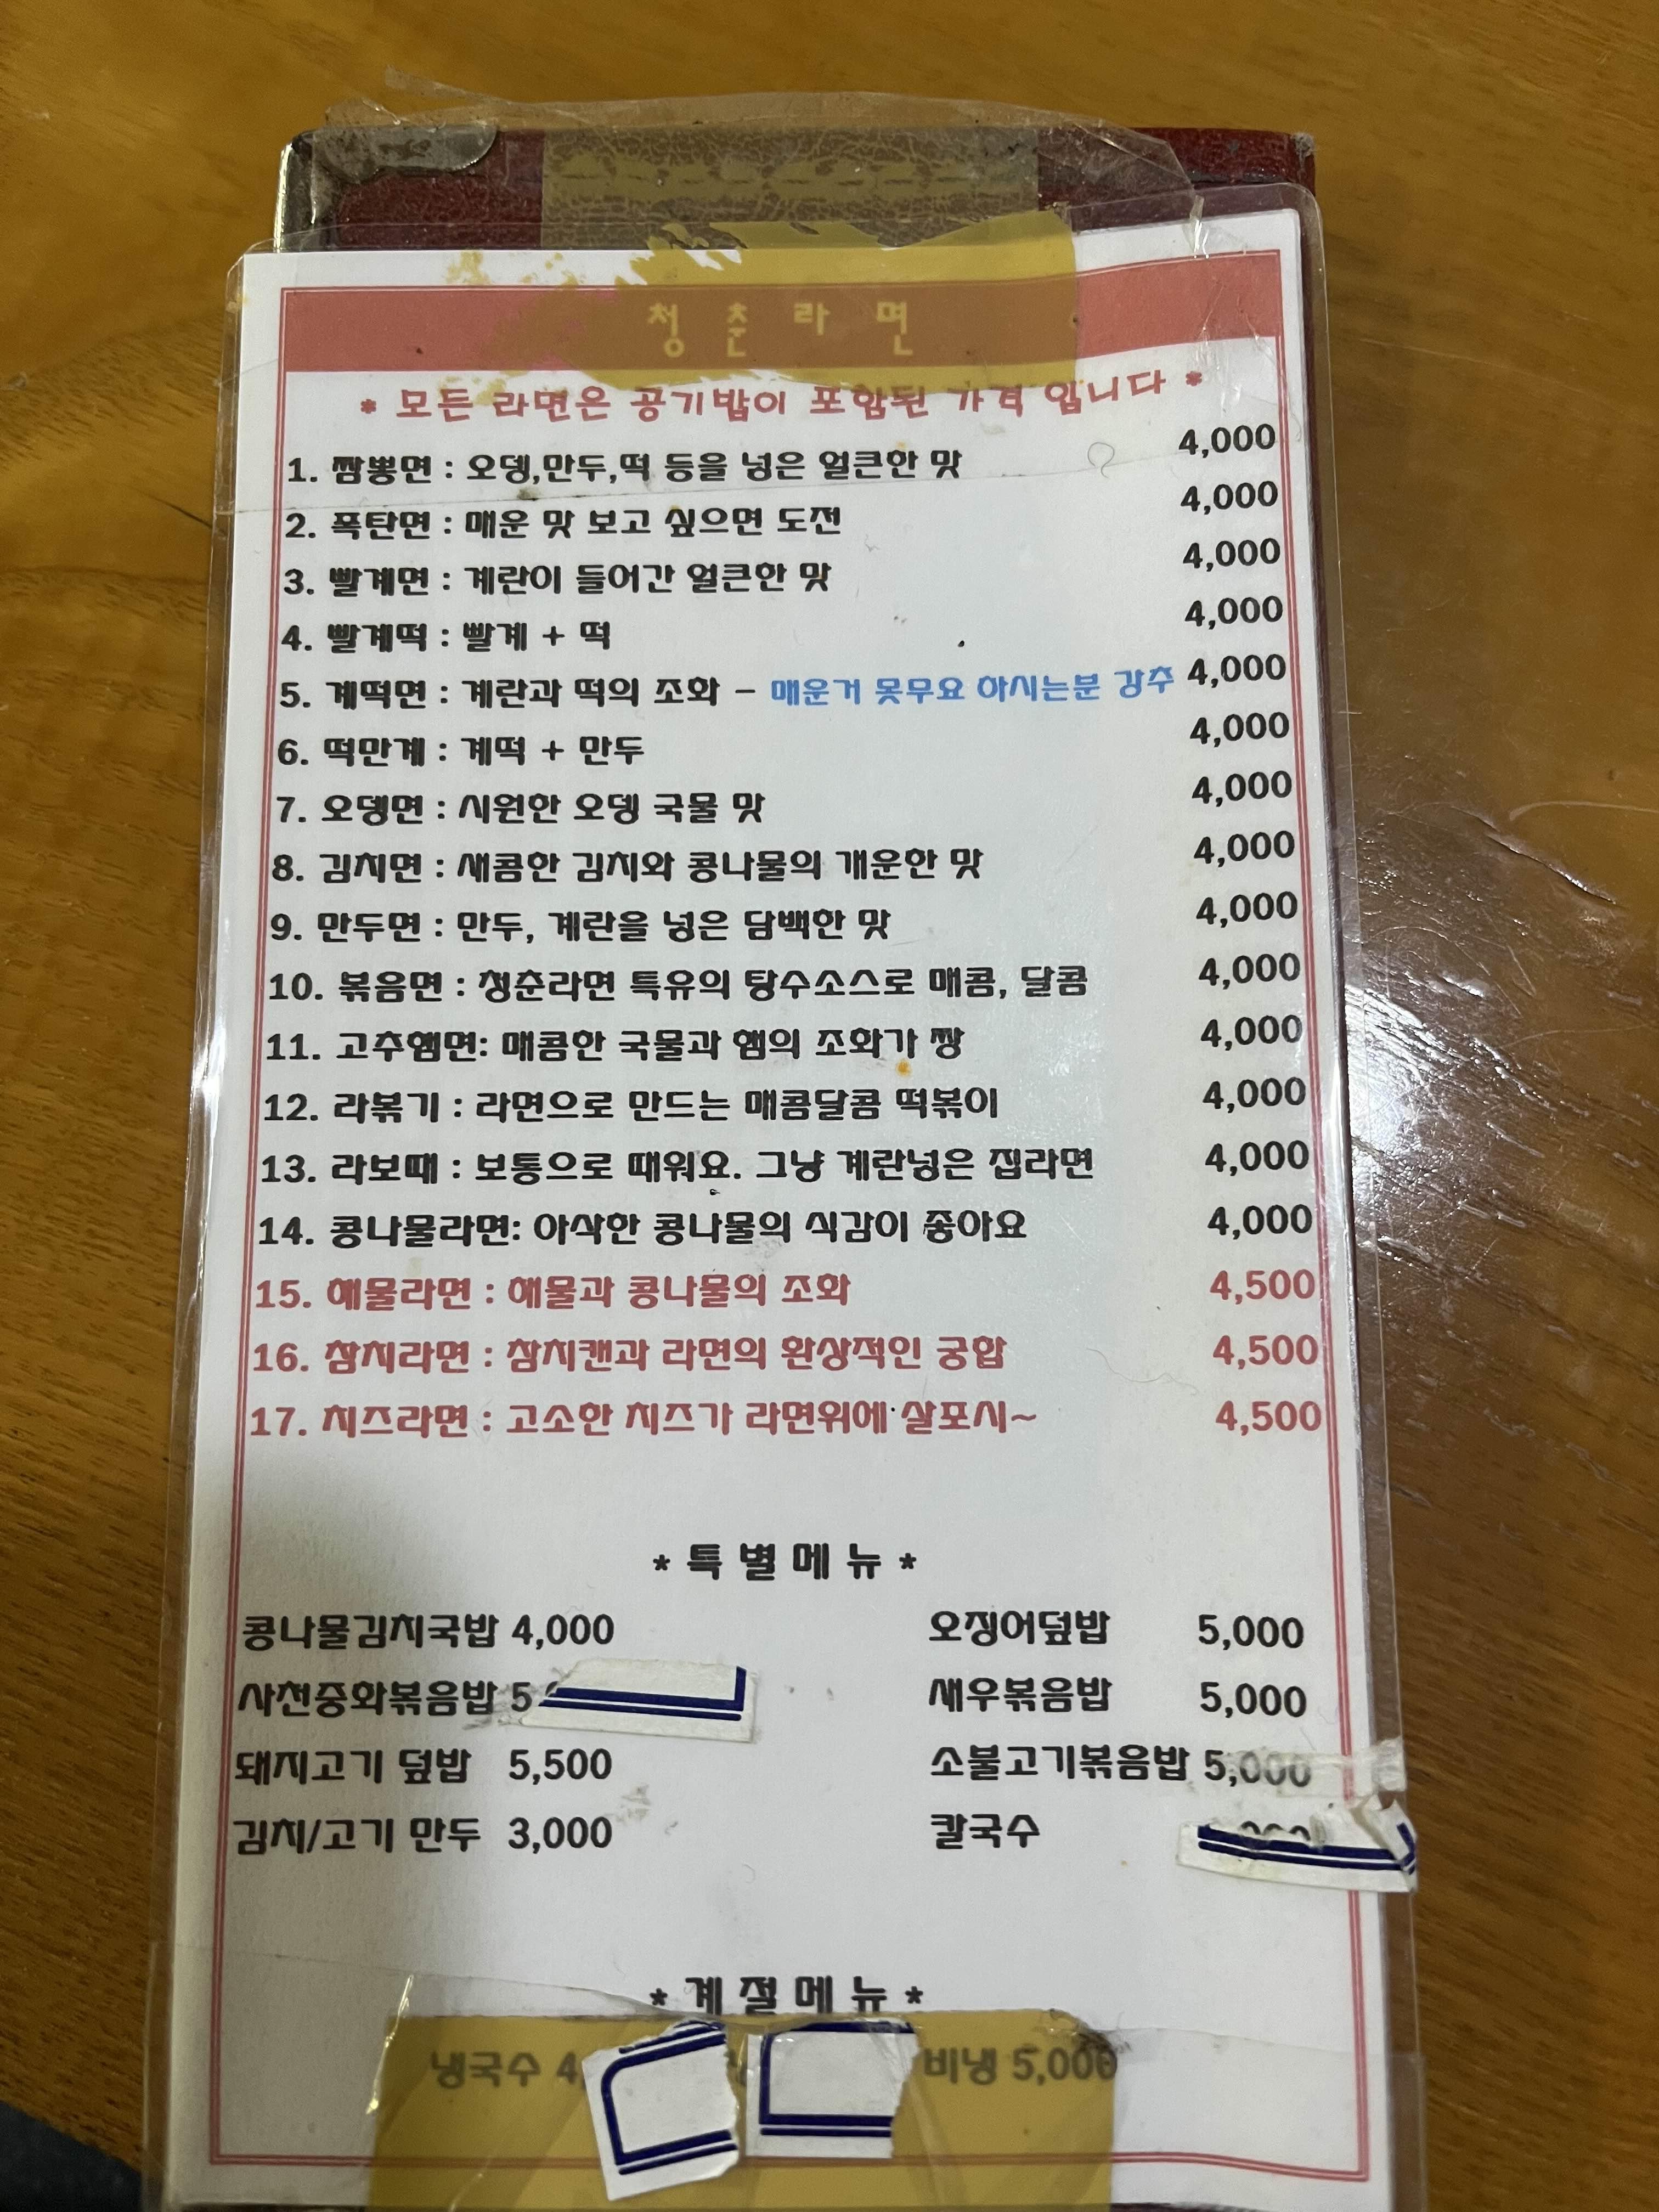 청 춘 라 면
* 모든 라면은 공기밥이 포함된 가격 입니다 *
1. 짬뽕면 : 오뎅,만두,떡 등을 넣은 얼큰한 맛 4,000
2. 폭탄면 : 매운 맛 보고 싶으면 도전 4,000
3. 빨계면 : 계란이 들어간 얼큰한 맛 4,000
4. 빨계떡 : 빨계 + 떡 4,000
5. 계떡면 : 계란과 떡의 조화 - 매운거 못무요 하시는분 강추 4,000
6. 떡만계 : 계떡 + 만두 4,000
7. 오뎅면 : 시원한 오뎅 국물 맛 4,000
8. 김치면 : 새콤한 김치와 콩나물의 개운한 맛 4,000
9. 만두면 : 만두, 계란을 넣은 담백한 맛 4,000
10. 볶음면 : 청춘라면 특유의 탕수소스로 매콤, 달콤 4,000
11. 고추햄면: 매콤한 국물과 햄의 조화가 짱 4,000
12. 라볶기 : 라면으로 만드는 매콤달콤 떡볶이 4,000
13. 라보때 : 보통으로 때워요. 그냥 계란넣은 집라면 4,000
14. 콩나물라면: 아삭한 콩나물의 식감이 좋아요 4,000
15. 해물라면 : 해물과 콩나물의 조화 4,500
16. 참치라면 : 참치캔과 라면의 환상적인 궁합 4,500
17. 치즈라면 : 고소한 치즈가 라면위에 살포시~ 4,500
* 특 별 메 뉴 *
콩나물김치국밥 4,000 오징어덮밥 5,000
사천중화볶음밥 새우볶음밥 5,000
돼지고기 덮밥 5,500 소불고기볶음밥 5,000
김치/고기 만두 3,000 칼국수
* 계 절 메 뉴 *
냉국수 비냉 5,000